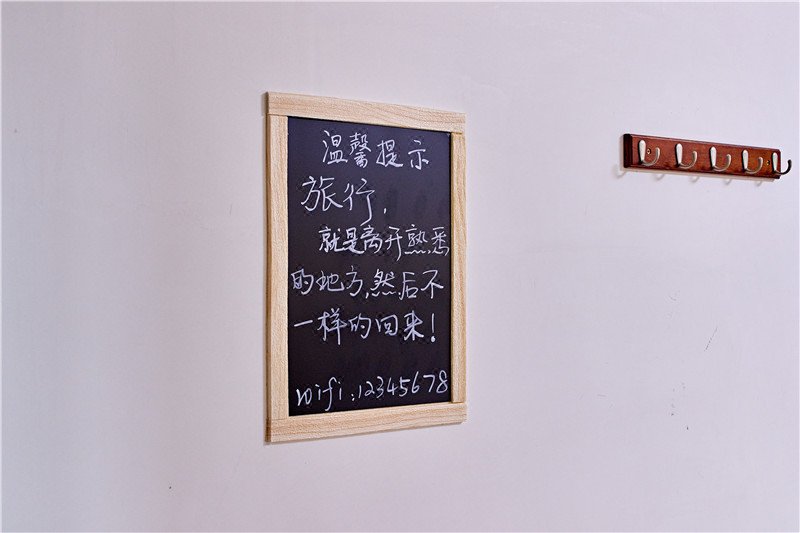 温馨提示
旅行,
就是离开熟悉
的地方,然后不
一样的回来!
wifi:12345678